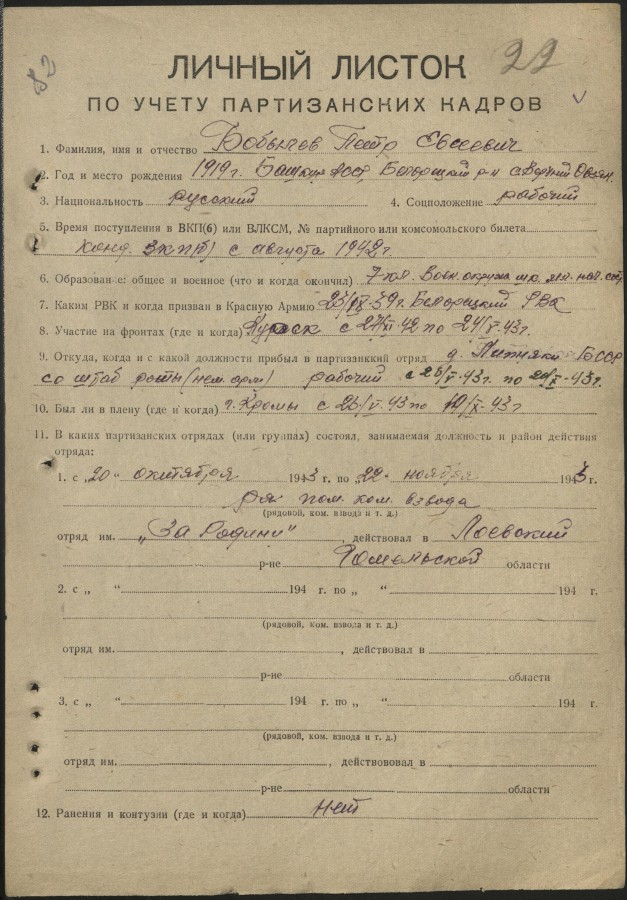 22
ЛИЧНЫЙ ЛИСТОК
ПО УЧЕТУ ПАРТИЗАНСКИХ КАДРОВ
1. Фамилия, имя и отчество Бобычев Петр Евсеевич
2. Год и место рождения 1919 г. Башкир. АССР, Белорецкий р-н с. Верхний
3. Национальность русский 4. Соцположение рабочий
5. Время поступления в ВКП(б) или ВЛКСМ, № партийного или комсомольского билета
Канд. ВКП(б) с августа 1942 г
6. Образование: общее и военное (что и когда окончил) 7 кл.
7. Каким РВК и когда призван в Красную Армию 39 г. Белорецкий РВК
8. Участие на фронтах (где и когда) Курск с 27/ 42 по 24/V-43 г.
9. Откуда, когда и с какой должности прибыл в партизанккий отряд д. БССР
со штаб роты (нем. арм) рабочий с по 43 г.
10. Был ли в плену (где и когда) г. Кромы с 43 по 43 г
11. В каких партизанских отрядах (или группах) состоял, занимаемая должность и район действия
отряда:
1. с „20“ октября 1943 г. по „22“ ноября 1943 г.
ряд. пом. ком. взвода
(рядовой, ком. взвода и т. д.)
отряд им. „За Родину“, действовал в Лоевский
р-не Гомельской области
2. с „ “ 194 г. по „ “ 194 г.
(рядовой, ком. взвода и т. д.)
отряд им. , действовал в
р-не области
3. с „ “ 194 г. по „ “ 194 г.
(рядовой, ком. взвода и т. д.)
отряд им. , действововал в
р-не области
12. Ранения и контузии (где и когда) нет